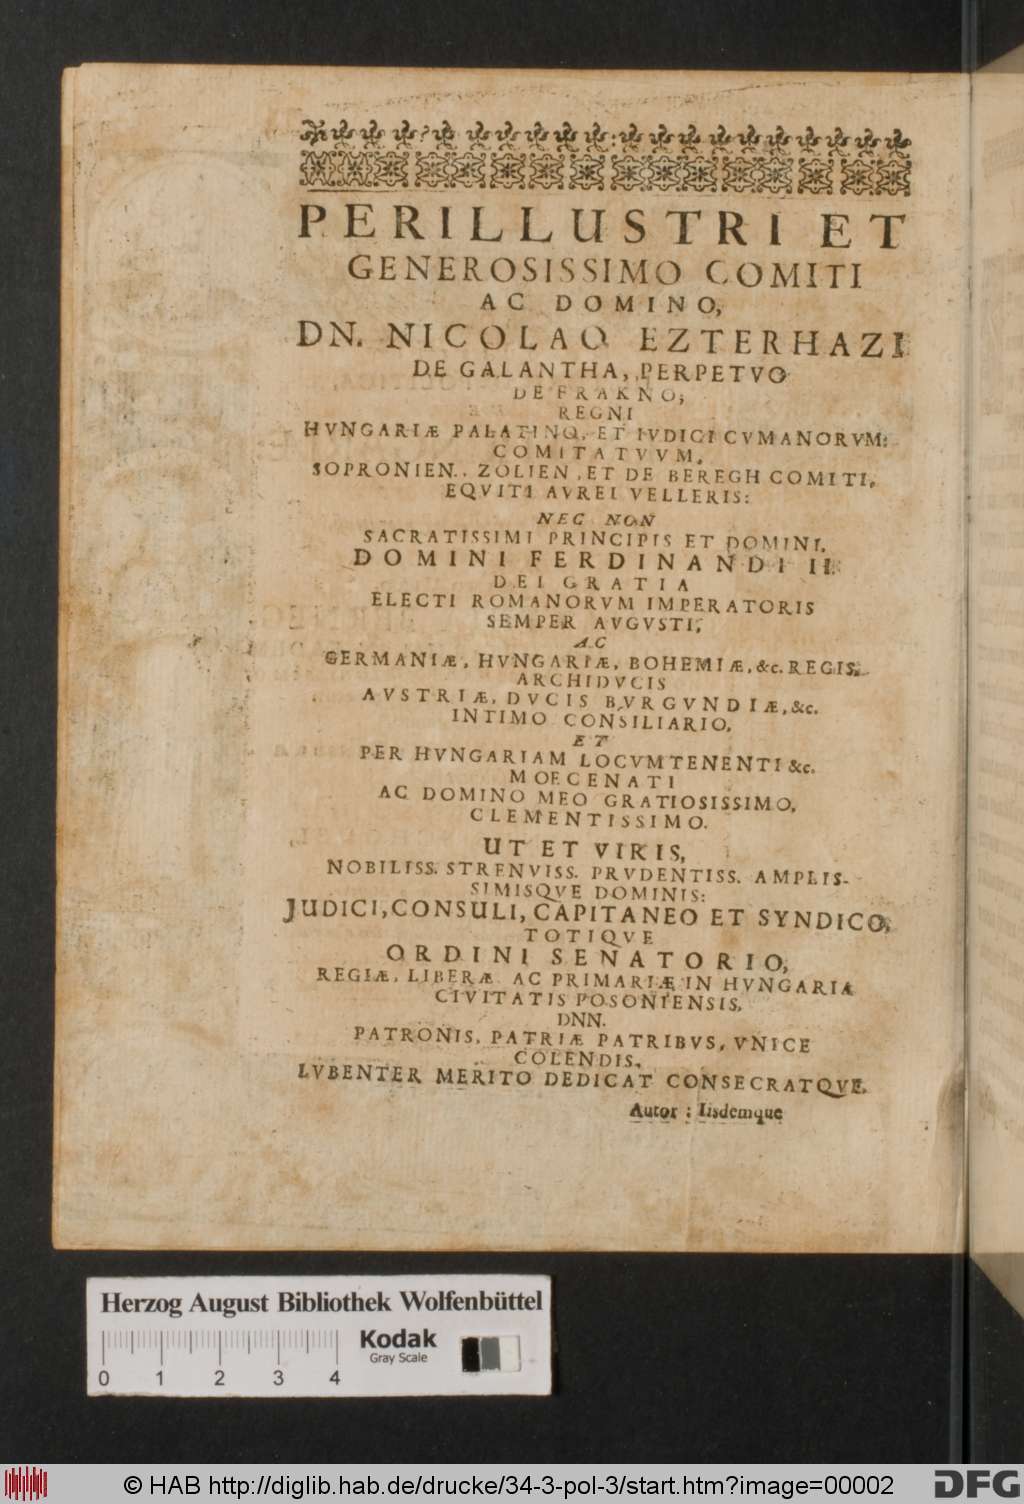 PERILLUSTRI ET
GENEROSISSIMO COMITI
AC DOMINO,
DN. NICOLAO EZTERHAZI
DE GALANTHA, PERPETVO
DE FRAKNO;
REGNI
HVNGARIÆ PALATINO, ET IVDICI CVMANORVM:
COMITATVVM,
SOPRONIEN., ZOLIEN, ET DE BEREGH COMITI,
EQVITI AVREI VELLERIS:
NEC NON
SACRATISSIMI PRINCIPIS ET DOMINI,
DOMINI FERDINANDI II.
DEI GRATIA
ELECTI ROMANORVM IMPERATORIS
SEMPER AVGVSTI,
AC
GERMANIÆ, HVNGARIÆ, BOHEMIÆ, &c. REGIS,
ARCHIDVCIS
AVSTRIÆ, DVCIS BVRGVNDIÆ, &c.
INTIMO CONSILIARIO,
ET
PER HVNGARIAM LOCVMTENENTI &c.
MOECENATI
AC DOMINO MEO GRATIOSISSIMO,
CLEMENTISSIMO.
UT ET VIRIS,
NOBILISS. STRENVISS. PRVDENTISS. AMPLIS-
SIMISQVE DOMINIS:
JUDICI, CONSULI, CAPITANEO ET SYNDICO,
TOTIQVE
ORDINI SENATORIO,
REGIÆ, LIBERÆ AC PRIMARIÆ IN HVNGARIA
CIVITATIS POSONIENSIS,
DNN.
PATRONIS, PATRIÆ PATRIBVS, VNICE
COLENDIS,
LVBENTER MERITO DEDICAT CONSECRATQVE.
Autor : Iisdemque
Herzog August Bibliothek Wolfenbüttel
Kodak
Gray Scale
0 1 2 3 4
© HAB http://diglib.hab.de/drucke/34-3-pol-3/start.htm?image=00002
DFG